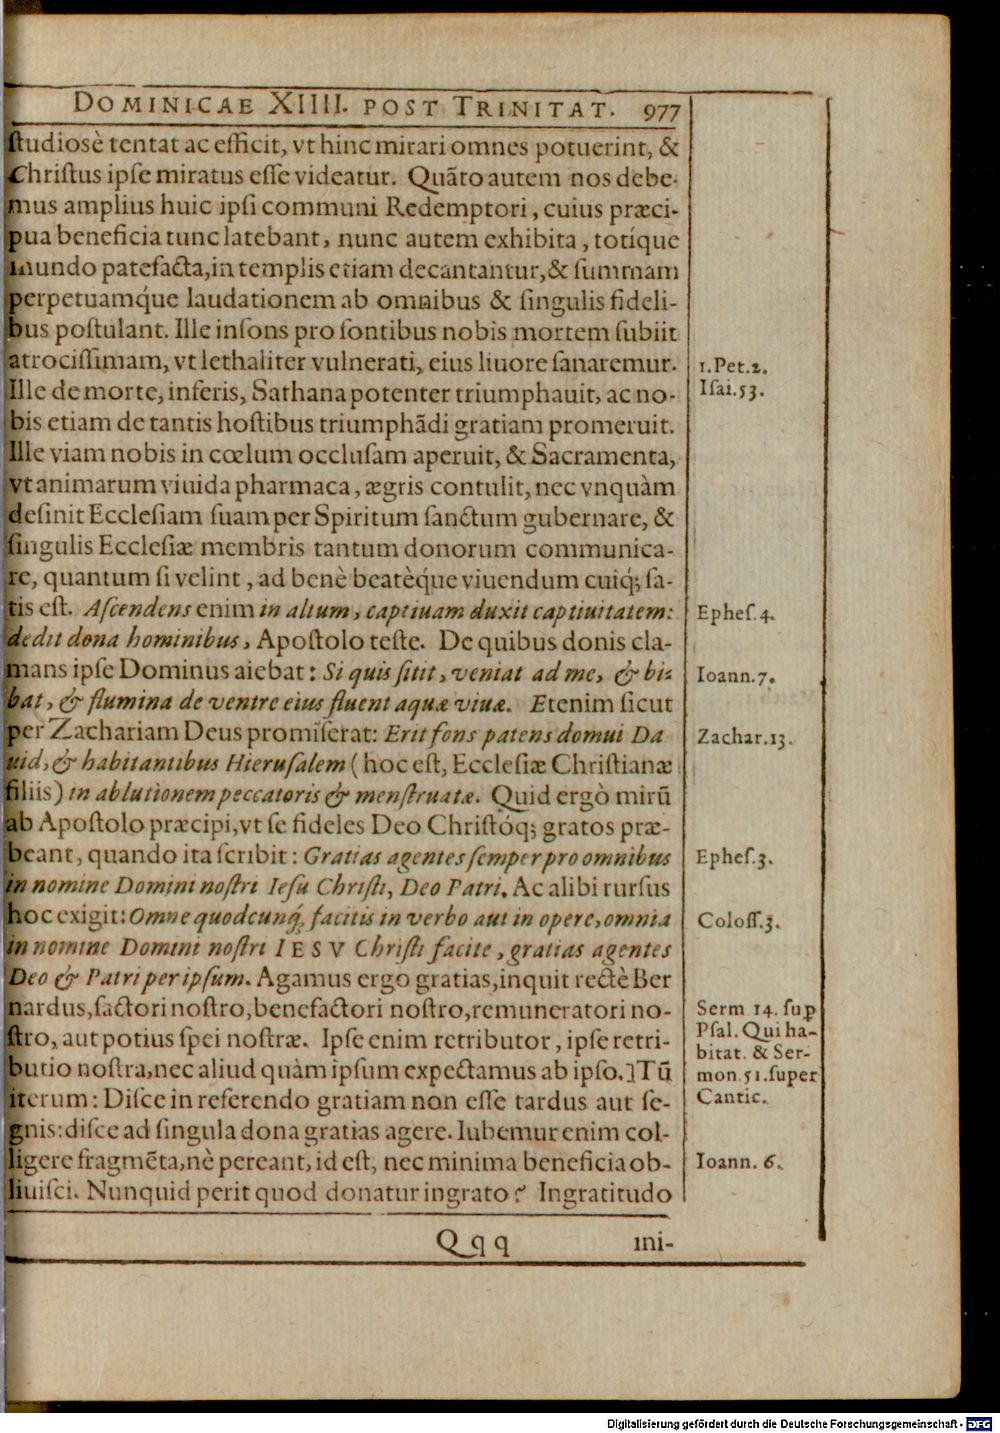 DOMINICAE XIIII. POST TRINITAT. 977
ſtudiosè tentat ac efficit, vt hinc mirari omnes potuerint, &
Chriſtus ipſe miratus eſſe videatur. Quāto autem nos debe-
mus amplius huic ipſi communi Redemptori, cuius præci-
pua beneficia tunc latebant, nunc autem exhibita, totíque
mundo patefacta, in templis etiam decantantur, & ſummam
perpetuamq́ue laudationem ab omnibus & ſingulis fideli-
bus poſtulant. Ille inſons pro ſontibus nobis mortem ſubiit
atrociſſimam, vt lethaliter vulnerati, eius liuore ſanaremur.
1. Pet. 2.
Ille de morte, inferis, Sathana potenter triumphauit, ac no-
Iſai. 53.
bis etiam de tantis hoſtibus triumphādi gratiam promeruit.
Ille viam nobis in cœlum occluſam aperuit, & Sacramenta,
vt animarum viuida pharmaca, ægris contulit, nec vnquàm
deſinit Eccleſiam ſuam per Spiritum ſanctum gubernare, &
ſingulis Eccleſiæ membris tantum donorum communica-
re, quantum ſi velint, ad benè beatèq́ue viuendum cuiq; ſa-
tis eſt. Aſcendens enim in altum, captiuam duxit captiuitatem:
Epheſ. 4.
dedit dona hominibus, Apoſtolo teſte. De quibus donis cla-
mans ipſe Dominus aiebat: Si quis ſitit, veniat ad me, & bi-
Ioann. 7.
bat, & flumina de ventre eius fluent aquæ viuæ. Etenim ſicut
per Zachariam Deus promiſerat: Erit fons patens domui Da
Zachar. 13.
uid, & habitantibus Hieruſalem (hoc eſt, Eccleſiæ Chriſtianæ
filiis) in ablutionem peccatoris & menſtruatæ. Quid ergò mirū
ab Apoſtolo præcipi, vt ſe fideles Deo Chriſtóq; gratos præ-
beant, quando ita ſcribit: Gratias agentes ſemper pro omnibus
Epheſ. 3.
in nomine Domini noſtri Ieſu Chriſti, Deo Patri. Ac alibi rurſus
hoc exigit: Omne quodcunq́; facitis in verbo aut in opere, omnia
Coloſſ. 3.
in nomine Domini noſtri IESV Chriſti facite, gratias agentes
Deo & Patri per ipſum. Agamus ergo gratias, inquit rectè Ber
nardus, factori noſtro, benefactori noſtro, remuneratori no-
Serm 14. ſuꝑ
ſtro, aut potius ſpei noſtræ. Ipſe enim retributor, ipſe retri-
Pſal. Qui ha-
bitat. & Ser-
butio noſtra, nec aliud quàm ipſum expectamus ab ipſo.] Tū
mon. 51. ſuper
iterum: Diſce in referendo gratiam non eſſe tardus aut ſe-
Cantic.
gnis: diſce ad ſingula dona gratias agere. Iubemur enim col-
ligere fragmēta, nè pereant, id eſt, nec minima beneficia ob-
Ioann. 6.
liuiſci. Nunquid perit quod donatur ingrato? Ingratitudo
Qqq ini-
Digitalisierung gefördert durch die Deutsche Forschungsgemeinschaft - DFG